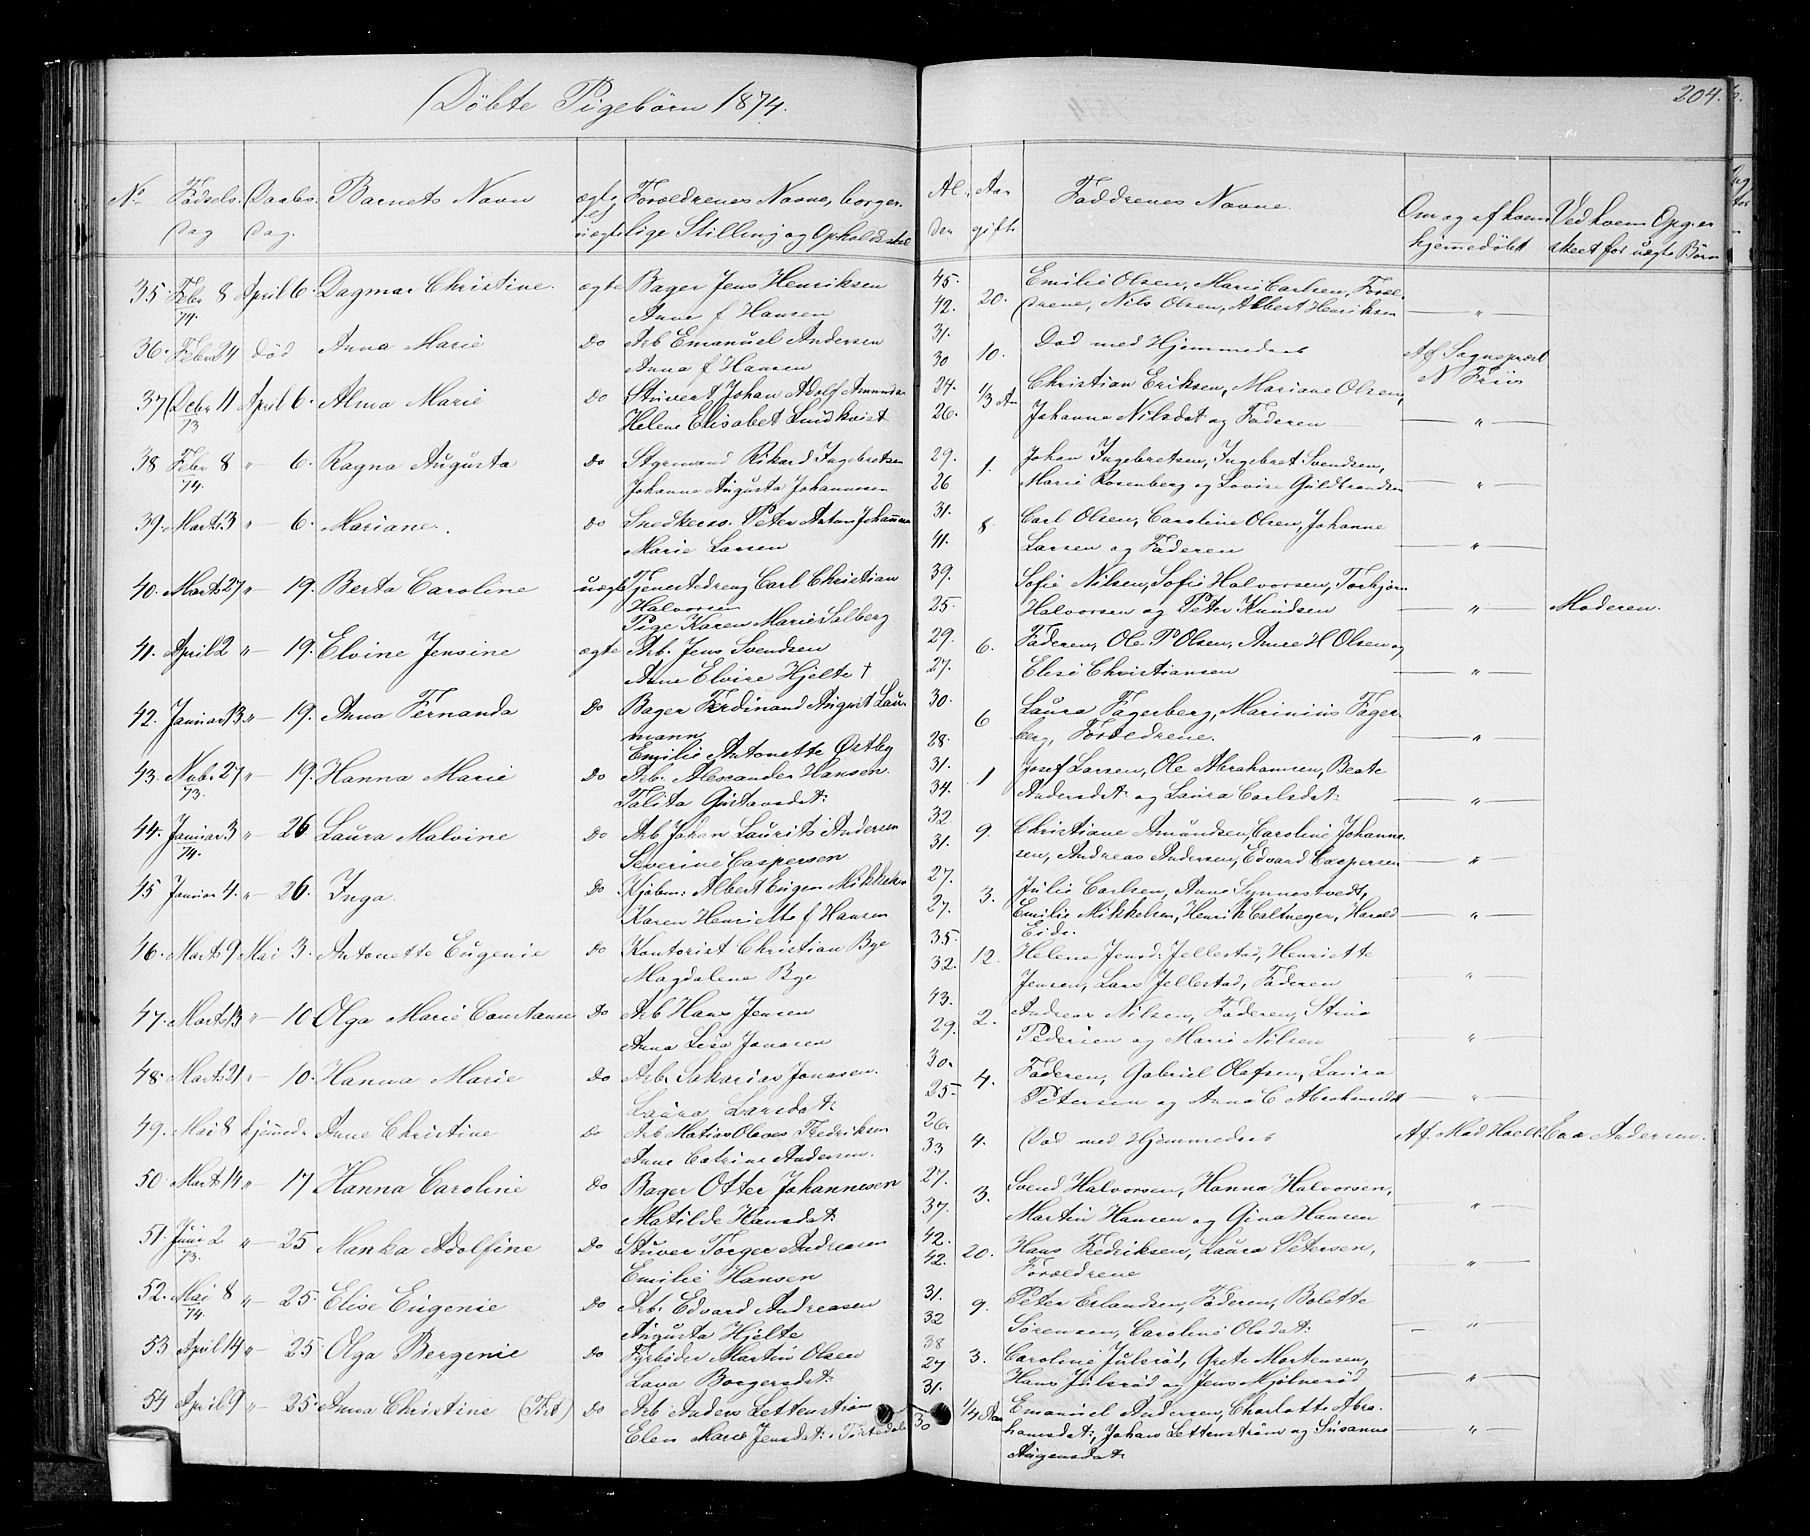 Døbte Pigebørn 1874.
204.
No Fødsels Dag Daabs Dag. Barnets Navn ægte ell uægte Forældrenes Navne, borgerlige Stilling og Opholdssted Alder Aar gift Faddrenes Navne. Om og af hvem hjemmedøbt Ved hvem Opgivelse skeet for uægte Børn
35. Febr 8 April 6. Dagmar Christine. ægte Bager Jens Henriksen 45. 20. Emilie Olsen, Marie Carlsen, Foræl-
74. Anne f Hansen 42. drene, Nils Olsen, Albert Henriksen — " —
36. Febr 24 død Anna Marie Do Arb Emanuel Andersen 31. 10. Død med Hjemmedaab Af Sognepræst
Anna f Hansen 30 N Friis
37 Debr 11 April 6. Alma Marie Do Stuvert Johan Adolf Amundsen 24. 1/3 Aar Christian Eriksen, Mariane Olsen,
73 Helene Elisabet Lundkvist 26. Johanne Nilsdat og Faderen — " —
38 Febr 8 " — 6. Ragna Augusta Do Styrmand Rikard Ingebretsen 29. 1. Johan Ingebretsen, Ingebret Svendsen,
74. Johanne Augusta Johannesen 26 Marie Rosenberg og Lovise Guldbrandsen — " —
39. Marts 3 " — 6. Mariane. Do Snedkersv. Peter Anton Johannesen 31. 8. Carl Olsen, Caroline Olsen, Johanne
Marie Larsen 41. Larsen og Faderen — " —
40. Marts 27 " — 19. Berta Caroline uægte Tjenestedreng Carl Christian 39. Sofie Nilsen, Sofie Halvorsen, Torbjørn
Halvorsen
Pige Karen Marie Solberg 25. Halvorsen og Peter Knudsen — " — Moderen.
41. April 2 " — 19. Elvine Jensine ægte Arb. Jens Svendsen 29. 6. Faderen, Ole P Olsen, Anne H Olsen og
Anne Elvire Hjelte † 27. Elise Christiansen — " —
42. Januar 13 " — 19. Anna Fernanda Do Bager Ferdinand August Lau- 30. 6 Laura Fagerberg, Marinius Fager-
mann
Emilie Antonette Østby 28. berg, Forældrene. — " —
43. Nobr 27 " — 19. Hanna Marie Do Arb. Alexander Hansen. 31. 1 Josef Larsen, Ole Abrahamsen, Beate
73. Talita Gustavsdat: 34. Andersdat: og Laura Carlsdat: — " —
44. Januar 3 " — 26 Laura Malvine Do Arb Johan Laurits Andersen 32 9. Christiane Amundsen, Caroline Johanne-
74. Severine Caspersen 31. sen, Andreas Andersen, Edvard Caspersen — " —
45 Januar 4. " — 26. Inga. Do Kjøbm: Albert Eugen Mikkelsen 27. 3. Julie Carlsen, Anne Synnestvedt,
Karen Henriette f Hansen 27. Emilie Mikkelsen, Henrik Harald — " —
Eide.
46. Marts 9 Mai 3. Antonette Eugenie Do Kontorist Christian Bye 35. 12. Helene Jensd: Jellestad, Henriette
Magdalena Bye 32. Jensen, Lars Jellestad, Faderen "
47. Marts 13 " — 10. Olga Marie Constanse Do Arb Hans Jensen 43. 2. Andreas Nilsen, Faderen, Stina
Anna Lisa Jonasen 29. Pedersen og Marie Nilsen "
48. Marts 21 " — 10. Hanna Marie Do Arb. Sakarias Jonasen. 30. 4. Faderen, Gabriel Olafsen, Laura
Laura Larsdat: 25. Petersen og Anna C Abrahamsdat — " —
49. Mai 8 hjemmed. Anne Christine Do Arb Matias Olaves Fredriksen 26. 4. Død med Hjemmedaab Af Mad Andersen.
Anne Catrine Andersen. 33
50. Marts 14 " — 17 Hanna Caroline Do Bager Otter Johannesen 27. 3. Svend Halvorsen, Hanna Halvorsen,
Matilde Hansdat: 37. Martin Hansen og Gina Hansen — " —
51. Juni 2 " — 25 Manka Adolfine Do Stuver Torger Andreasen 42. 20. Hans Fredriksen, Laura Petersen,
73. Emilie Hansen 42. Forældrene — " —
52. Mai 8 " — 25. Elise Eugenie Do Arb. Edvard Andreasen 31. 9. Peter Erlandsen, Faderen, Bolette
74. Augusta Hjelte 32 Sørensen, Caroline Olsdat: — " —
53 April 14 " — 25. Olga Bergenie Do Fyrbøder Martin Olsen 38 27 3. Caroline Julsrød, Grete Mortensen,
Lava Borgersdat: 31. Hans Julsrød og Jens Mjølnerød — " —
54 April 9 " — 25. Anna Christine Do Arb Anders Lettenstrøm 1/4 Aar Emanuel Andersen, Charlotte Abra-
Elen Marie Jensdat: 30 hamsdat:, Johan Lettenstrøm og Susanne — " —
Augensdat: